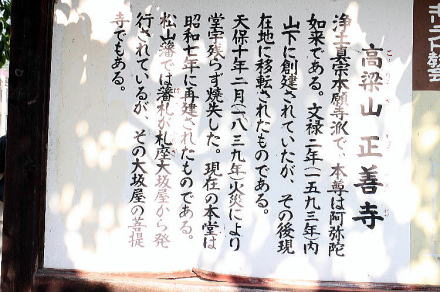 高梁山 正善寺
浄土真宗本願寺派で、本尊は阿弥陀
如来である。文禄二年(一五九三年)内
山下に創建されていたが、その後現
在地に移転されたものである。
天保十年二月(一八三九年)火災により
堂宇残らず焼失した。現在の本堂は
昭和七年に再建されたものである。
松山藩では藩札の札座大坂屋から発
行されているが、その大坂屋の菩提
寺でもある。